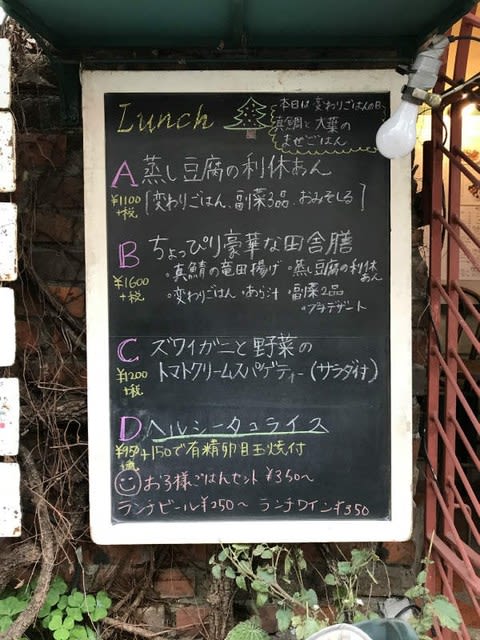 Lunch
本日は変わりごはんの日
真鯛と大葉の
まぜごはん
A 蒸し豆腐の利休あん
¥1100
+税
[変わりごはん、副菜3品、おみそしる]
B ちょっぴり豪華な田舎膳
¥1600
+税
・真鯖の竜田揚げ ・蒸し豆腐の利休あん
・変わりごはん・あら汁 ・副菜2品
・プチデザート
C ズワイガニと野菜の
トマトクリームスパゲティー(サラダ付)
¥1200
+税
D ヘルシータコライス
¥950 +150で有精卵目玉焼付
お子様ごはんセット ¥350〜
ランチビール¥250〜 ランチワイン¥350